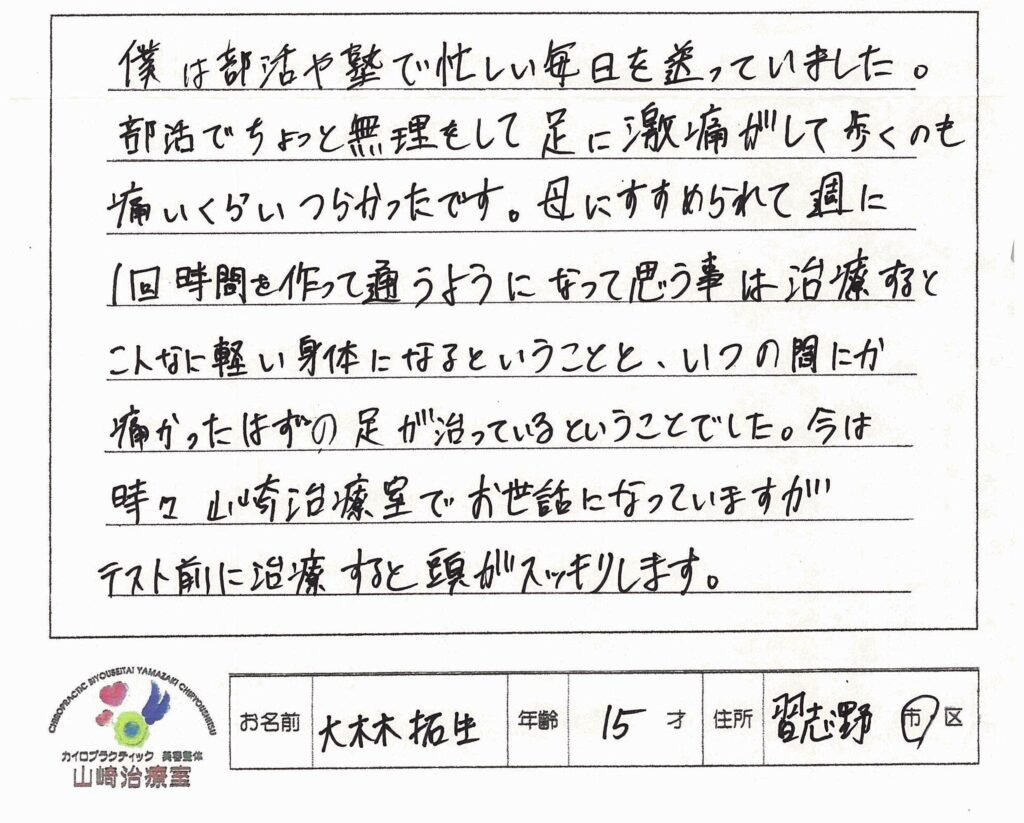 僕は部活や塾で忙しい毎日を送っていました。
部活でちょっと無理をして足に激痛がして歩くのも
痛いくらいつらかったです。母にすすめられて週に
1回時間を作って通うようになって思う事は治療すると
こんなに軽い身体になるということと、いつの間にか
痛かったはずの足が治っているということでした。今は
時々山崎治療室でお世話になっていますが
テスト前に治療すると頭がスッキリします。
CHIROPRACTIC BIYOUSEITAI YAMAZAKI CHIRYOUSHITSU
カイロプラクティック 美容整体
山崎治療室
お名前 大木木拓生 年齢 15才 住所 習志野 市・区